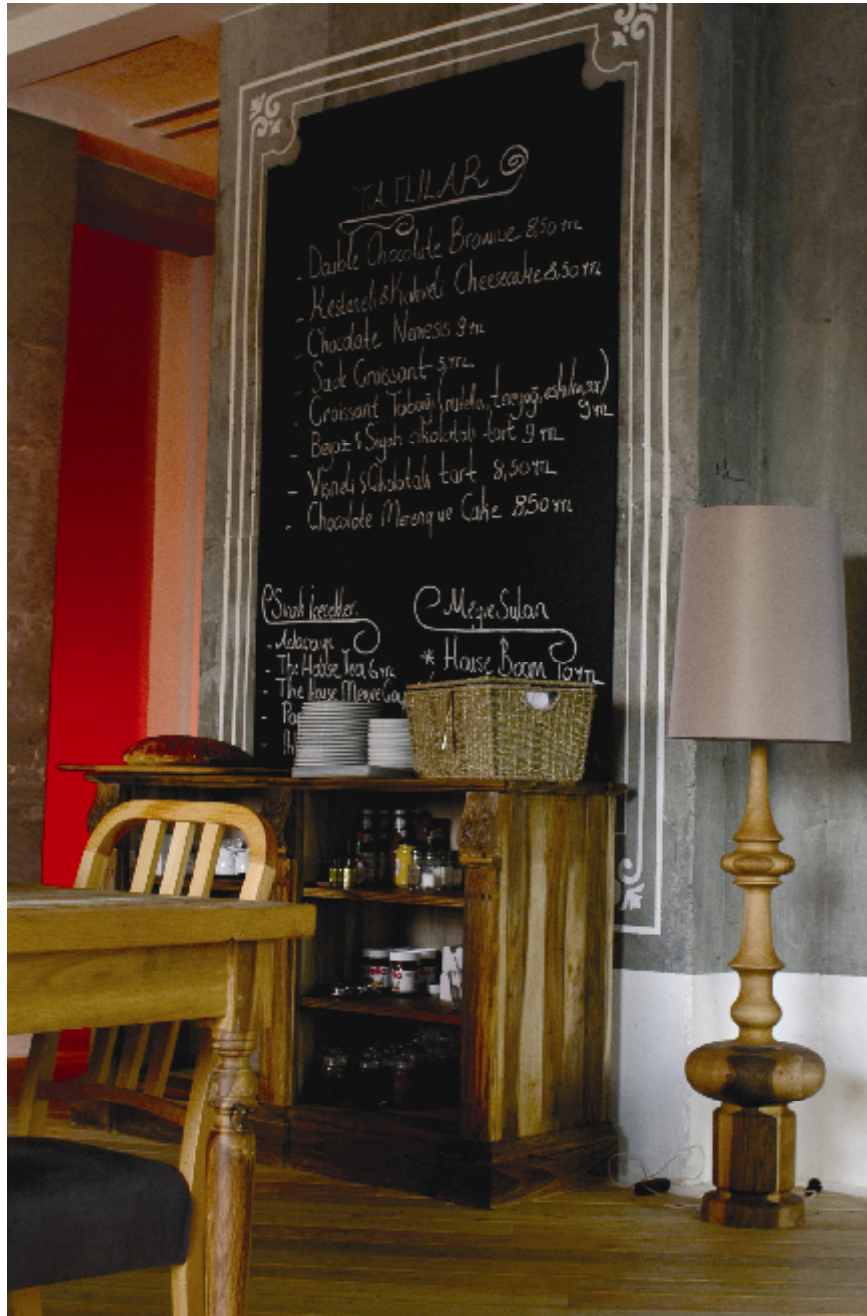 TATLILAR
- Double Chocolate Brownie 8,50 TL
- Kestaneli & Kahveli Cheesecake 8,50 TL
- Chocolate Nemesis 9 TL
- Sade Croissant 5 TL
- Croissant Tabağı (nutella, tereyağı,
9 TL
- Beyaz & Siyah çikolatalı tart 9 TL
- Vişneli & Çikolatalı tart 8,50 TL
- Chocolate Merengue Cake 8,50 TL
Sıcak İçecekler
- Adaçayı
- The House Tea 6 TL
- The House Meyve Çayı
Meyve Suları
* House Boom 10 TL